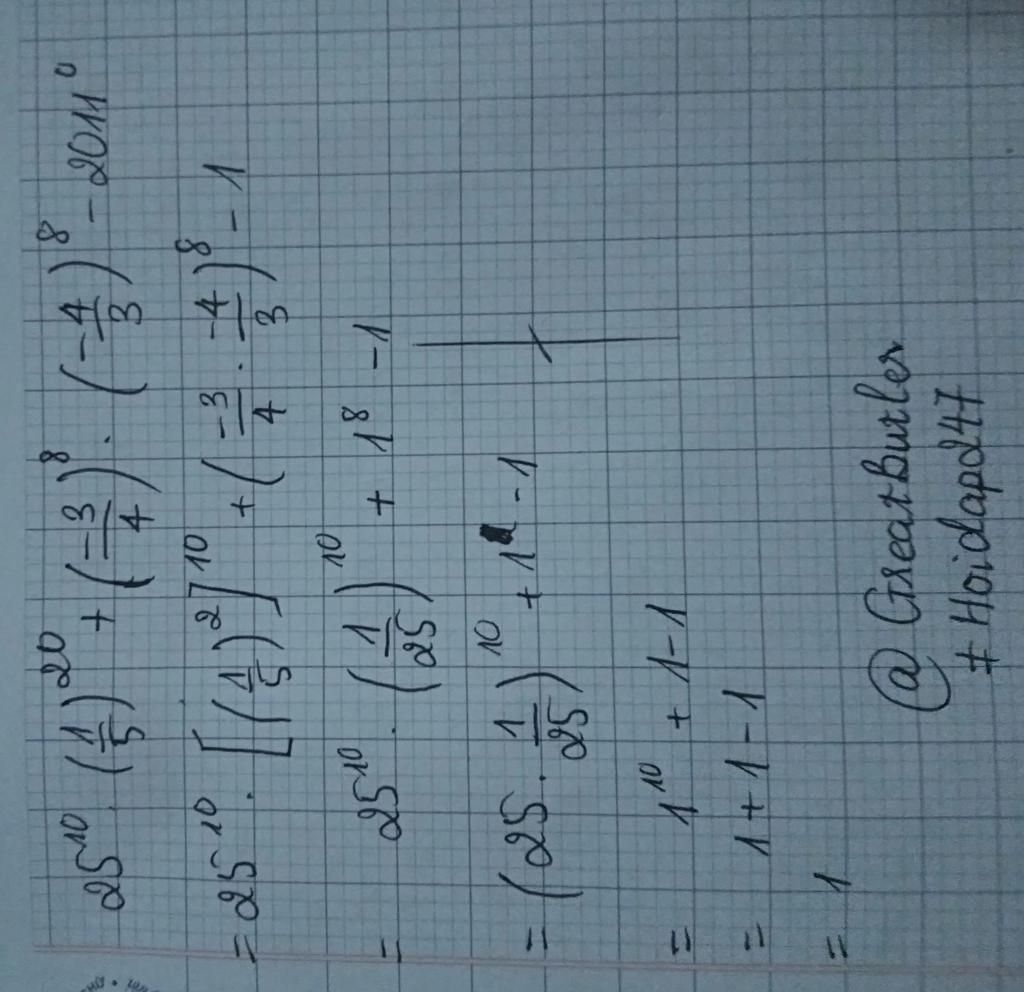 25^10 . (1/5)^20 + (-3/4)^8 . (-4/3)^8 - 2011^0
= 25^10 . [(1/5)^2]^10 + (-3/4 . -4/3)^8 - 1
= 25^10 . (1/25)^10 + 1^8 - 1
= (25 . 1/25)^10 + 1 - 1
= 1^10 + 1 - 1
= 1 + 1 - 1
= 1
@ Greatbutler
# Hoidap247